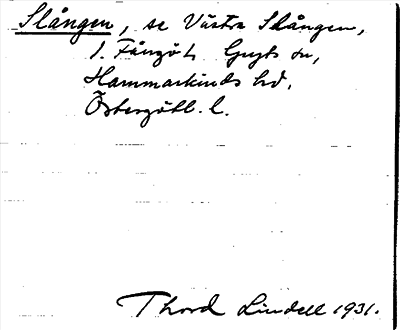 Slången, se Västra Slången,
l. Fångö, Gryts sn,
Hammarkinds hd,
Östergötl. l.
Thord Lindell 1931.